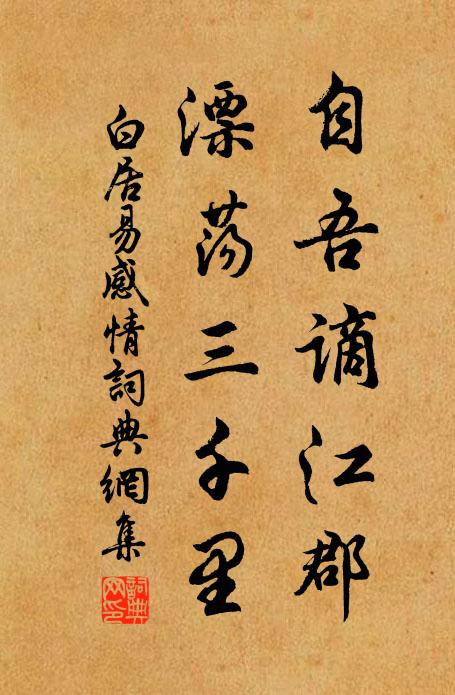 自吾謫江郡
漂荡三千里
白居易感情詞典網集
詞典網印